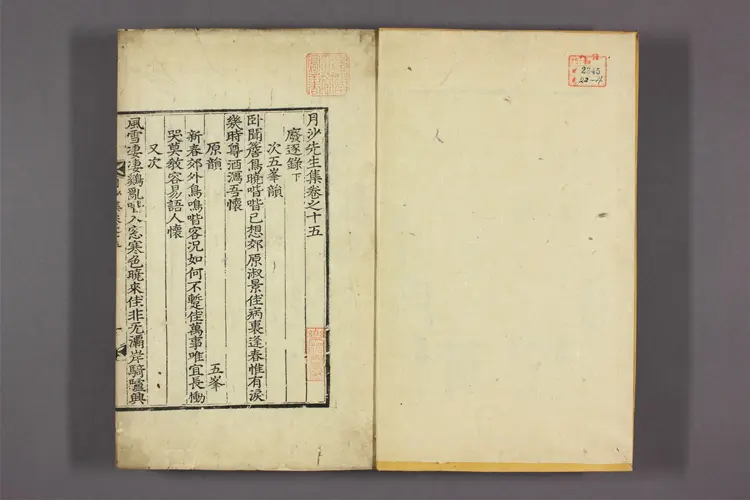 月沙先生集卷之十五
廢逐錄下
次五峯韻
卧聞詹鳥曉喈喈已想郊原淑景佳病裏逢春惟有淚
幾時尊酒瀉吾懷
原韻 五峯
新春郊外鳥鳴喈客况如何不暫佳萬事唯宜長慟
哭莫敎容易語人懷
又次
風雪凄凄鷄亂喈入窓寒色曉來佳非无灞岸騎驢興
2345
22-4